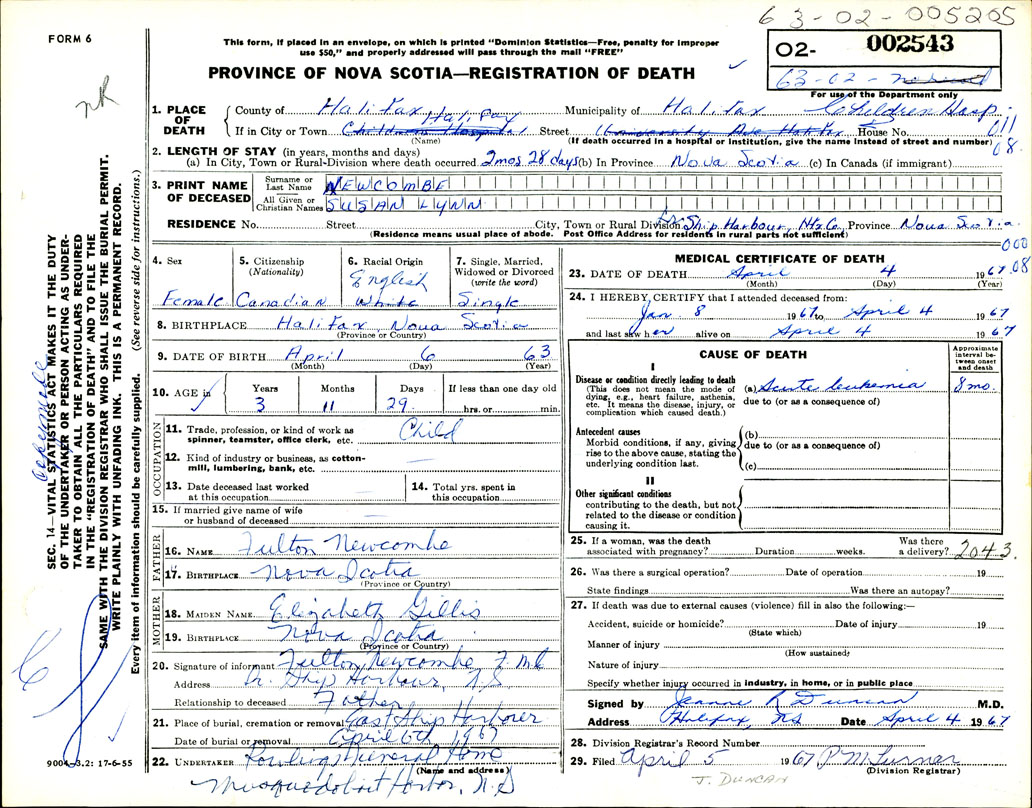 63-02-005205
FORM 6
This form, if placed in an envelope, on which is printed "Dominion Statistics—Free, penalty for improper
use $50," and properly addressed will pass through the mail "FREE"
02- 002543
63-02-
For use of the Department only
PROVINCE OF NOVA SCOTIA—REGISTRATION OF DEATH
nR
1. PLACE OF DEATH
County of Halifax Municipality of Halifax Children Hosp.
Halifax
If in City or Town Childrens Hospital Street University Ave Halifax House No. 011
(Name) (If death occurred in a hospital or institution, give the name instead of street and number) 08.
2. LENGTH OF STAY (in years, months and days)
(a) In City, Town or Rural-Division where death occurred 2mos 28days (b) In Province Nova Scotia (c) In Canada (if immigrant)
3. PRINT NAME OF DECEASED
Surname or Last Name NEWCOMBE
All Given or Christian Names SUSAN LYNN
RESIDENCE No. Street City, Town or Rural Division Lr. Ship Harbour, Hfx Co. Province Nova Scotia
(Residence means usual place of abode. Post Office Address for residents in rural parts not sufficient)
000
08
4. Sex
Female
5. Citizenship
(Nationality)
Canadian
6. Racial Origin
English
White
7. Single, Married,
Widowed or Divorced
(write the word)
Single
8. BIRTHPLACE Halifax Nova Scotia
(Province or Country)
9. DATE OF BIRTH April 6 63
(Month) (Day) (Year)
10. AGE in
Years Months Days If less than one day old
3 11 29 hrs. or min.
OCCUPATION
11. Trade, profession, or kind of work as
spinner, teamster, office clerk, etc. Child
12. Kind of industry or business, as cotton-
mill, lumbering, bank, etc. —
13. Date deceased last worked
at this occupation
14. Total yrs. spent in
this occupation
15. If married give name of wife
or husband of deceased —
FATHER
16. NAME Fulton Newcombe
17. BIRTHPLACE Nova Scotia
(Province or Country)
MOTHER
18. MAIDEN NAME Elizabeth Gillis
19. BIRTHPLACE Nova Scotia
(Province or Country)
20. Signature of informant Fulton Newcombe
Address Lr. Ship Harbour, N.S
Relationship to deceased Father
21. Place of burial, cremation or removal East Ship Harbour
Date of burial or removal April 6th, 1967
22. UNDERTAKER Funeral Home
(Name and address)
Musquodoboit Harbor, N.S
MEDICAL CERTIFICATE OF DEATH
23. DATE OF DEATH April 4 1967
(Month) (Day) (Year)
24. I HEREBY CERTIFY that I attended deceased from:
Jan 8 1967 to April 4 1967
and last saw her alive on April 4 1967
CAUSE OF DEATH
Approximate
interval be-
tween onset
and death
I
Disease or condition directly leading to death
(This does not mean the mode of
dying, e.g., heart failure, asthenia,
etc. It means the disease, injury, or
complication which caused death.)
(a) Acute leukemia 8 mo.
due to (or as a consequence of)
Antecedent causes
Morbid conditions, if any, giving
rise to the above cause, stating the
underlying condition last.
(b)
due to (or as a consequence of)
(c)
II
Other significant conditions
contributing to the death, but not
related to the disease or condition
causing it.
25. If a woman, was the death
associated with pregnancy? Duration weeks. Was there
a delivery? 2043.
26. Was there a surgical operation? Date of operation 19
State findings Was there an autopsy?
27. If death was due to external causes (violence) fill in also the following:—
Accident, suicide or homicide? Date of injury 19
(State which)
Manner of injury
(How sustained)
Nature of injury
Specify whether injury occurred in industry, in home, or in public place
Signed by Jeanne R Duncan M.D.
Address Halifax, NS Date April 4 1967
28. Division Registrar's Record Number
29. Filed April 5 1967 P M Turner
(Division Registrar)
J. DUNCAN
SEC. 14—VITAL STATISTICS ACT MAKES IT THE DUTY
OF THE UNDERTAKER OR PERSON ACTING AS UNDER-
TAKER TO OBTAIN ALL THE PARTICULARS REQUIRED
IN THE "REGISTRATION OF DEATH" AND TO FILE THE
SAME WITH THE DIVISION REGISTRAR WHO SHALL ISSUE THE BURIAL PERMIT.
WRITE PLAINLY WITH UNFADING INK. THIS IS A PERMANENT RECORD.
Every item of information should be carefully supplied. (See reverse side for instructions.)
9004-3.2: 17-6-55